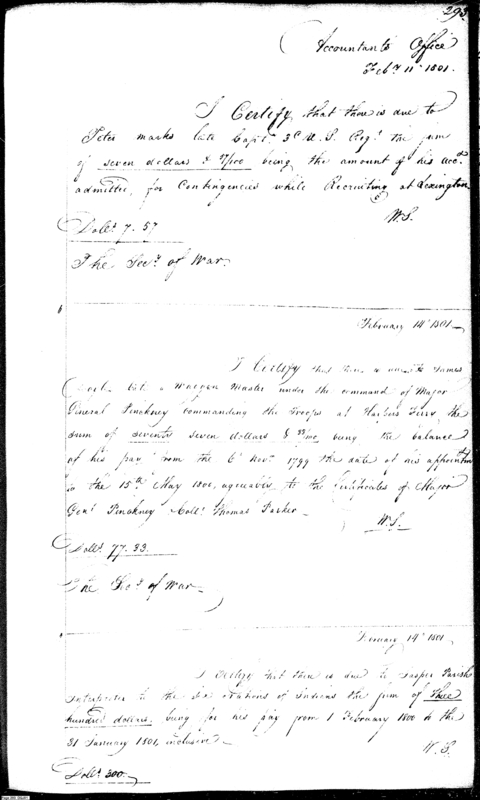 293
Accountants Office
Feby. 11th 1801.
I Certify, that there is due to
Peter Marks late Capt. 3d U.S. Regt. the sum
of seven dollars & 57/100 being the amount of his acc.
admitted, for Contingencies while Recruiting at Lexington
W.S.
Dolls. 7. 57
The Secy. of War.
February 14th 1801.
I Certify that there is due to James
late a Waggon Master under the command of Major
General Pinckney commanding the Troops at Harpers Ferry, the
sum of seventy seven dollars & 33/100 being the balance
of his pay from the 6th Novr. 1799 the date of his appointm
to the 15th May 1800, agreeably to the Certificates of Major
Genl. Pinckney & Coll. Thomas Parker.
W.S.
Dolls. 77. 33.
The Secy. of War
February 14th 1801
I Certify that there is due to Jasper Parish
interpreter to the Six Nations of Indians the sum of three
hundred dollars, being for his pay from 1 February 1800 to the
31 January 1801, inclusive.
W.S.
Dolls. 300.